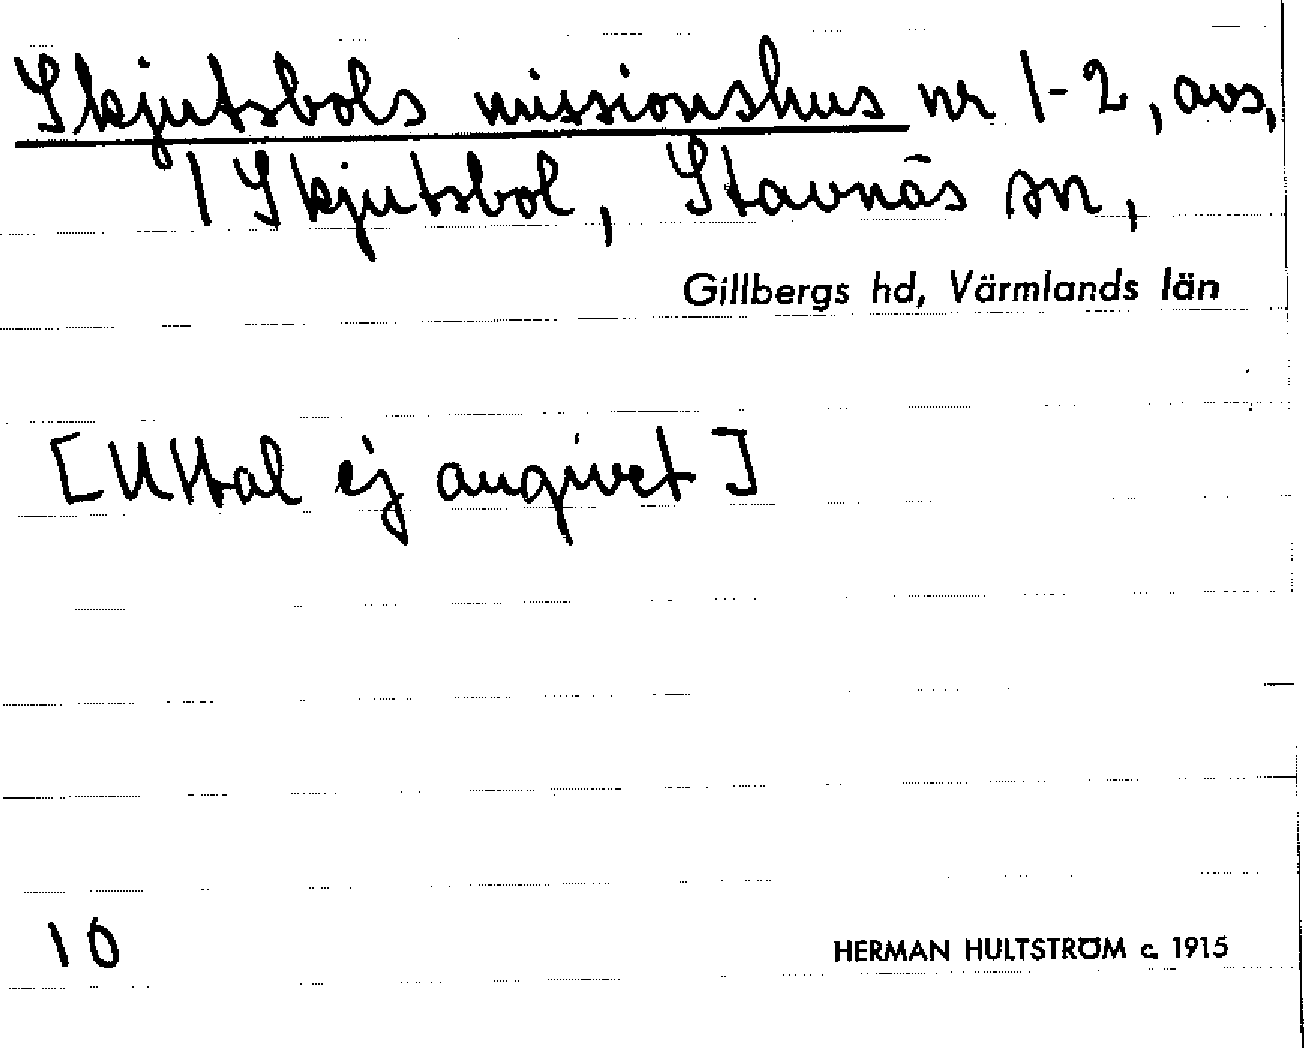 Skjutsbols missionshus nr 1-2, avs,
1 Skjutsbol, Stavnäs sn,
Gillbergs hd, Värmlands län
[Uttal ej angivet]
10
HERMAN HULTSTRÖM c. 1915